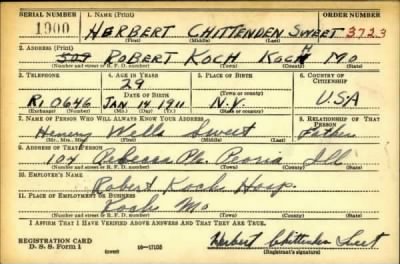 SERIAL NUMBER 1. NAME (Print) ORDER NUMBER
1900 HERBERT CHITTENDEN SWEET 3723
(First) (Middle) (Last)
2. ADDRESS (Print)
509 ROBERT KOCH KOCH MO
(Number and street or R. F. D. number) (Town) (County) (State)
3. TELEPHONE 4. AGE IN YEARS 5. PLACE OF BIRTH 6. COUNTRY OF CITIZENSHIP
29
DATE OF BIRTH (Town or county)
RI 0646 JAN 14 1911 N.Y. USA
(Exchange) (Number) (Mo.) (Day) (Yr.) (State or country)
7. NAME OF PERSON WHO WILL ALWAYS KNOW YOUR ADDRESS 8. RELATIONSHIP OF THAT PERSON
Henry Wells Sweet Father
(Mr., Mrs., Miss) (First) (Middle) (Last)
9. ADDRESS OF THAT PERSON
104 Rebecca Pl. Peoria Ill
(Number and street or R. F. D. number) (Town) (County) (State)
10. EMPLOYER'S NAME
Robert Kochs Hosp.
11. PLACE OF EMPLOYMENT OR BUSINESS
Kochs Mo
(Number and street or R. F. D. number) (Town) (County) (State)
I AFFIRM THAT I HAVE VERIFIED ABOVE ANSWERS AND THAT THEY ARE TRUE.
REGISTRATION CARD
D. S. S. Form 1 16—17105 Herbert Chittenden Sweet
(Registrant's signature)